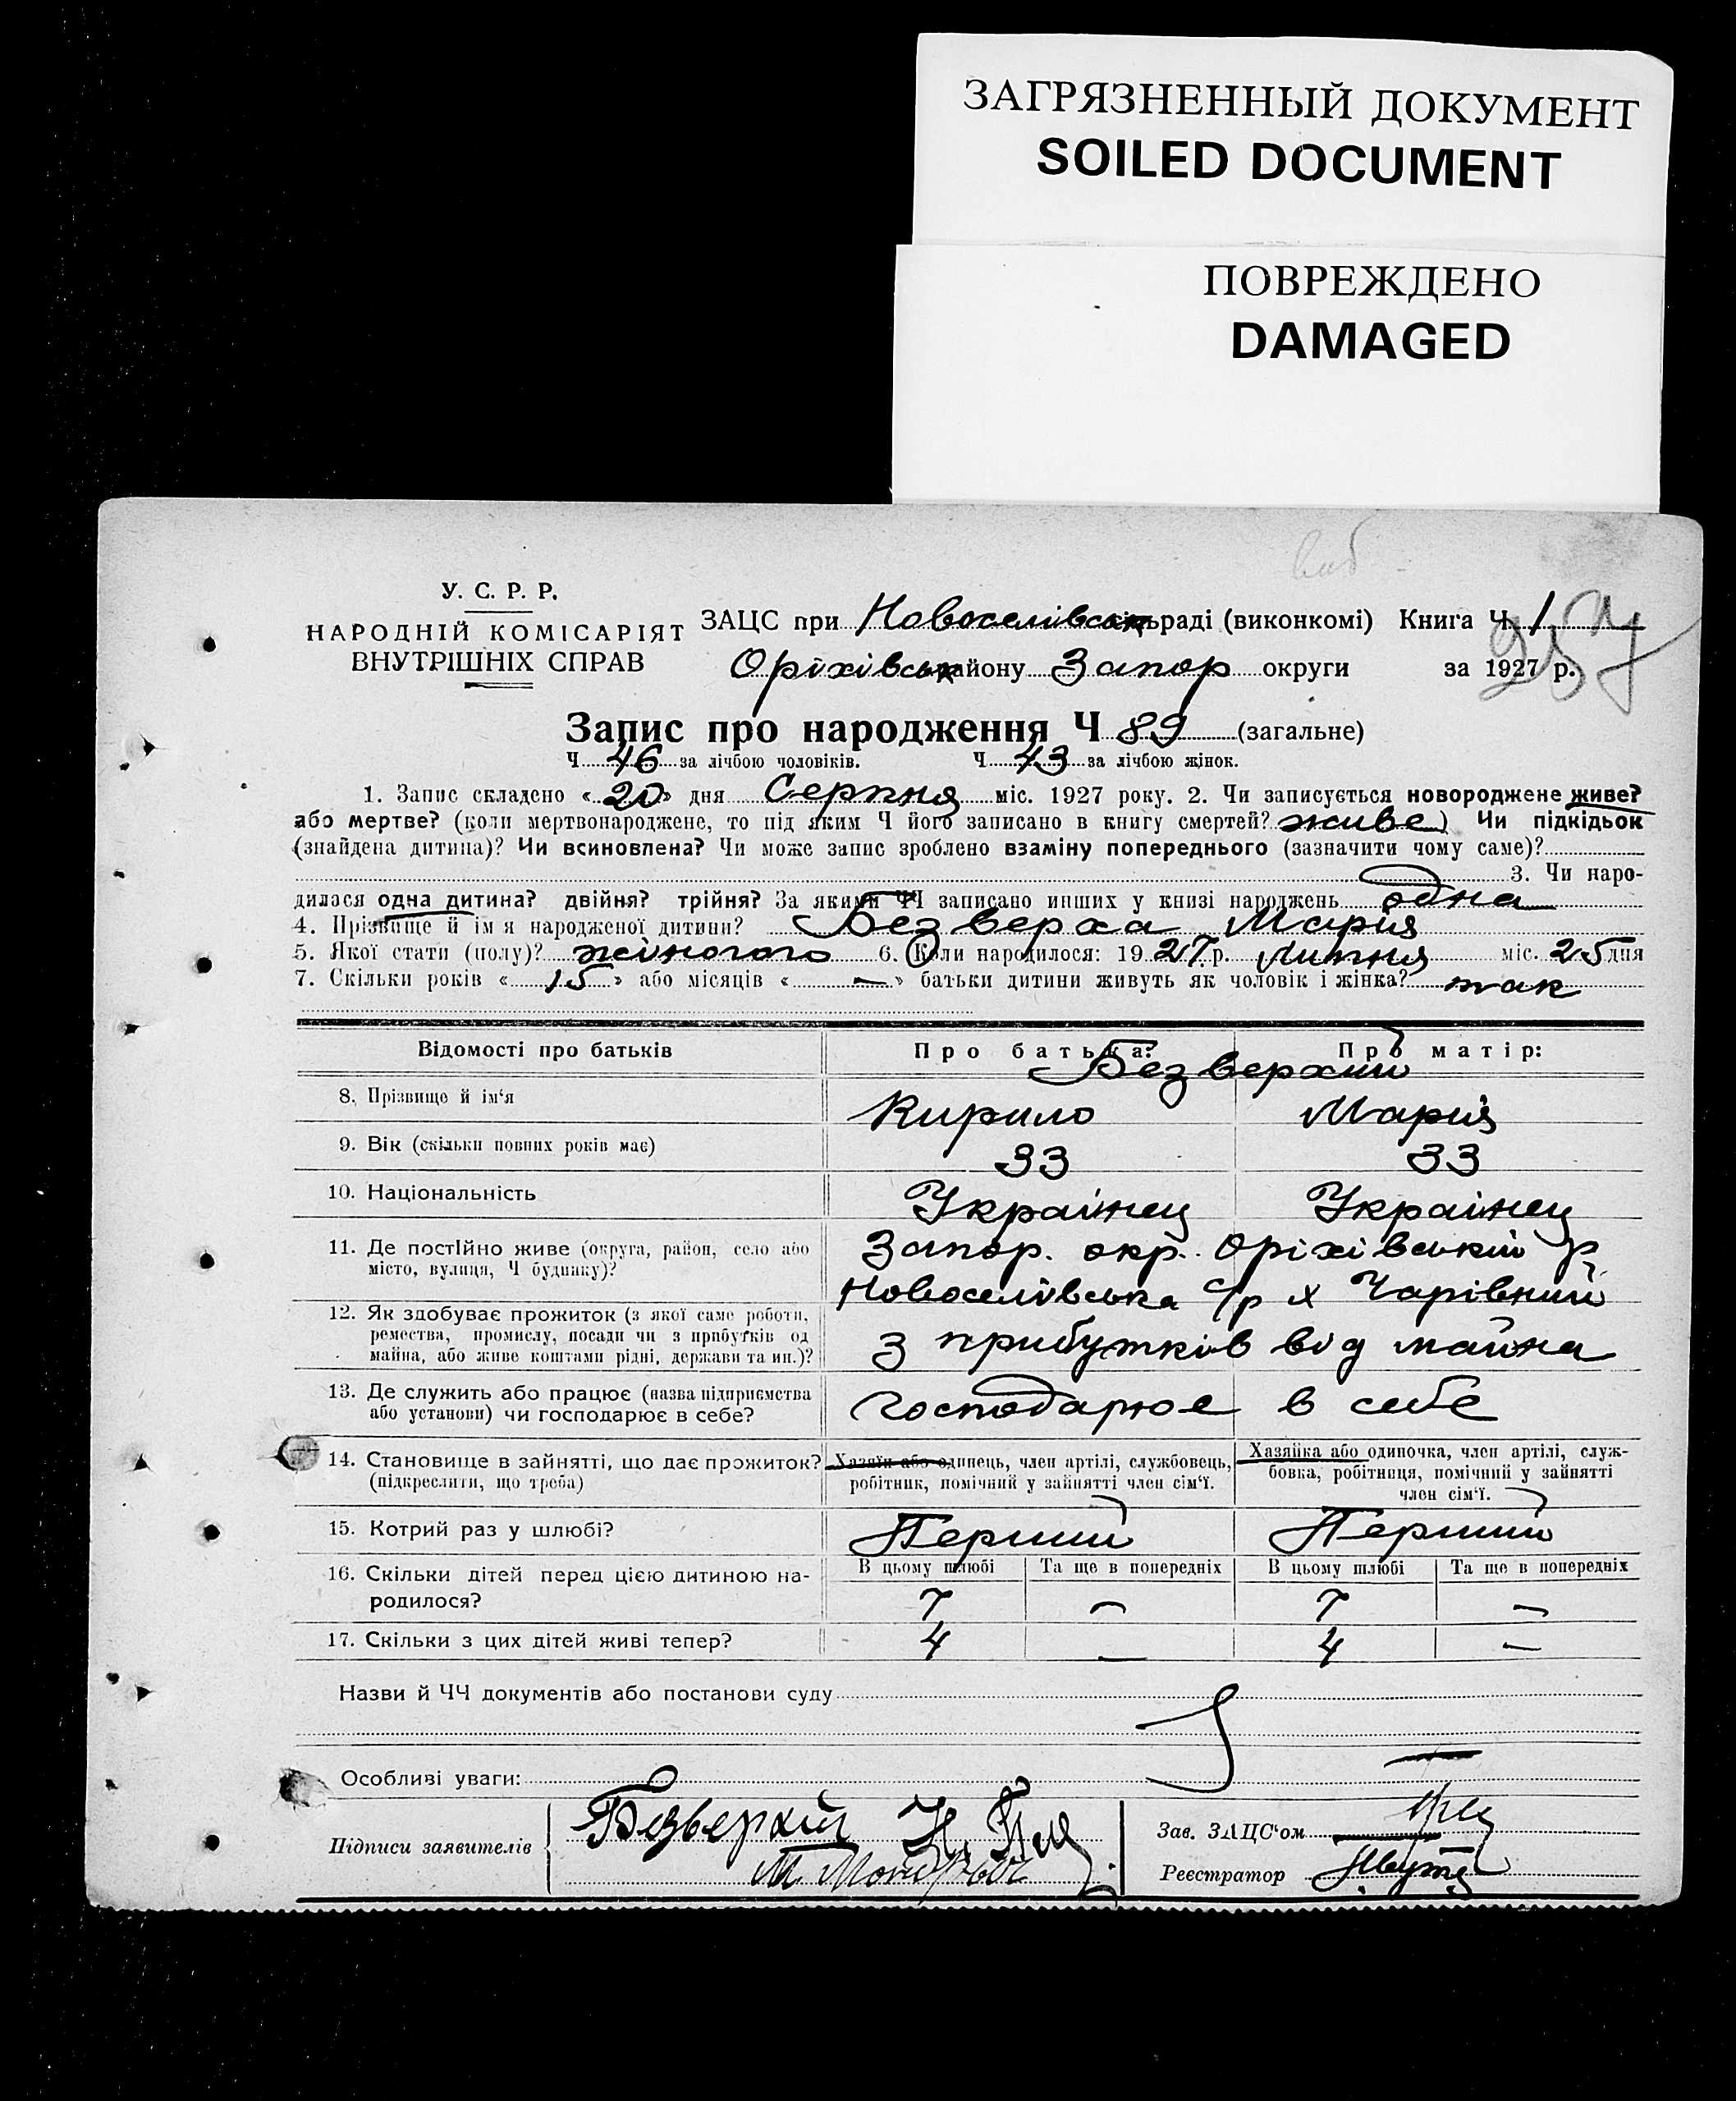 ЗАГРЯЗНЕННЫЙ ДОКУМЕНТ
SOILED DOCUMENT
ПОВРЕЖДЕНО
DAMAGED
У. С. Р. Р.
НАРОДНІЙ КОМІСАРІЯТ
ВНУТРІШНІХ СПРАВ
ЗАЦС при Новоселівськ раді (виконкомі) Книга Ч. 1
257
Оріхівськ району Запор округи за 1927 р.
Запис про народження Ч 89 (загальне)
Ч 46 за лічбою чоловіків. Ч 43 за лічбою жінок.
1. Запис складено «20» дня Серпня міс. 1927 року. 2. Чи записується новороджене живе?
або мертве? (коли мертвонароджене, то під яким Ч його записано в книгу смертей? живе) Чи підкідьок
(знайдена дитина)? Чи всиновлена? Чи може запис зроблено взаміну попереднього (зазначити чому саме)?
3. Чи наро-
дилася одна дитина? двійня? трійня? За якими ЧЧ записано инших у книзі народжень одна
4. Прізвище й ім я народженої дитини? Безверха Мария
5. Якої стати (полу)? жіночого 6. Коли народилося: 1927 р. Липня міс. 25 дня
7. Скільки років «15» або місяців «—» батьки дитини живуть як чоловік і жінка? так
Відомості про батьків Про батька: Про матір:
Безверхий
8. Прізвище й ім'я Кирило Мария
9. Вік (скільки повних років має) 33 33
10. Національність Украінец Украінец
11. Де постійно живе (округа, район, село або місто, вулиця, Ч будинку)?
Запор. окр. Оріхівський р
Новоселівська с/р х Чарівний
12. Як здобуває прожиток (з якої саме роботи,
ремества, промислу, посади чи з прибутків од
майна, або живе коштами рідні, держави та ин.)?
з прибутків від майна
13. Де служить або працює (назва підприємства
або установи) чи господарює в себе?
господарює в себе
14. Становище в зайнятті, що дає прожиток?
(підкреслити, що треба)
Хазяїн або одинець, член артілі, службовець,
робітник, помічний у зайнятті член сім'ї.
Хазяйка або одиночка, член артілі, служ-
бовка, робітниця, помічний у зайнятті
член сім'ї.
15. Котрий раз у шлюбі? Перший Перший
В цьому шлюбі Та ще в попередніх В цьому шлюбі Та ще в попередніх
16. Скільки дітей перед цією дитиною на-
родилося? 7 — 7 —
17. Скільки з цих дітей живі тепер? 4 — 4 —
Назви й ЧЧ документів або постанови суду
Особливі уваги:
Підписи заявителів Безверхій
Зав. ЗАЦС'ом
Реєстратор